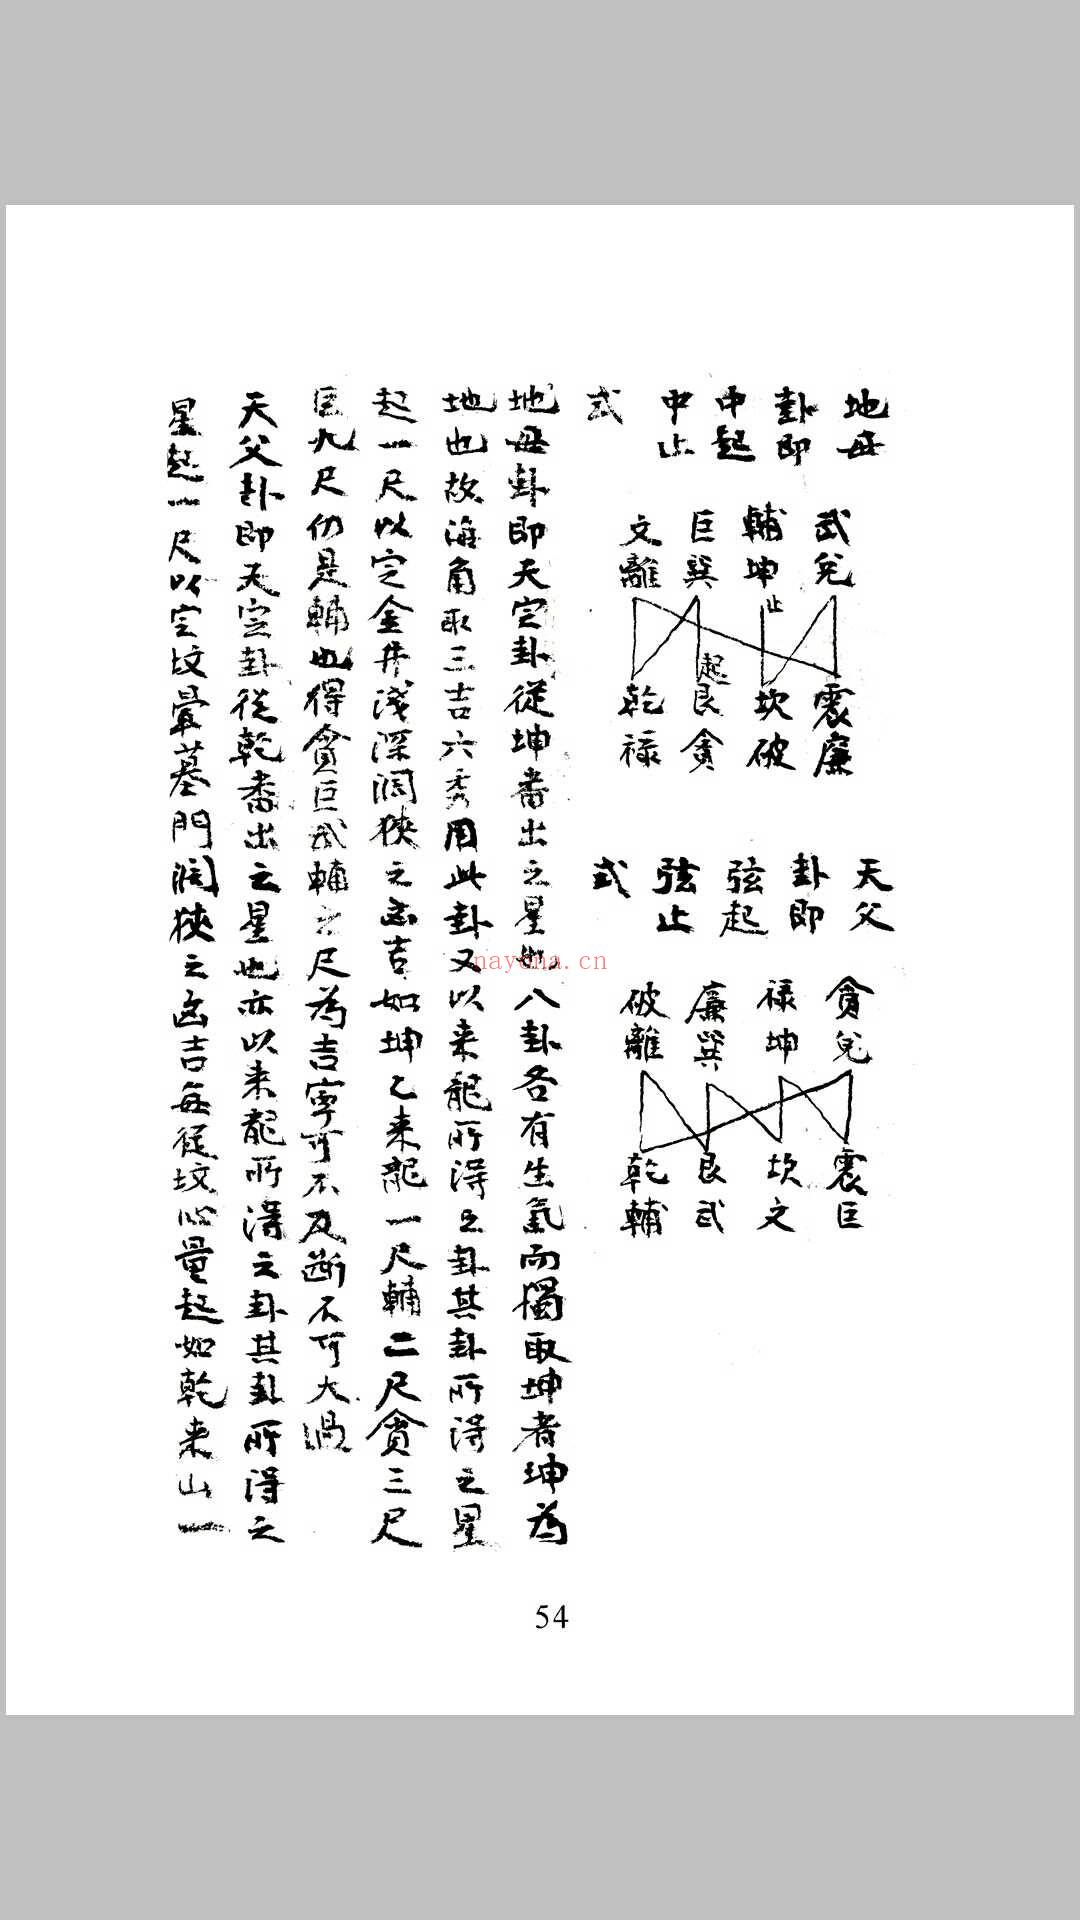 地母
卦即
中起
中止
式
武兌
輔坤
巨巽
文離
止
起
震廉
坎破
艮貪
乾祿
天父
卦即
弦起
弦止
式
貪兌
祿坤
廉巽
破離
震巨
坎文
艮武
乾輔
地母卦即天定卦從坤番出之星也八卦各有生氣而獨取坤者坤為
地也故海角取三吉六秀用此卦又以来龍所得之卦其卦所得之星
起一尺以定金井淺深濶狹之凶吉如坤乙来龍一尺輔二尺貪三尺
巨九尺仍是輔也得貪巨武輔之尺為吉寧可不及断不可太過
天父卦即天定卦從乾番出之星也亦以来龍所得之卦其卦所得之
星起一尺以定坟暈墓門濶狹之凶吉每從坟心量起如乾来山一
nayona.cn
54